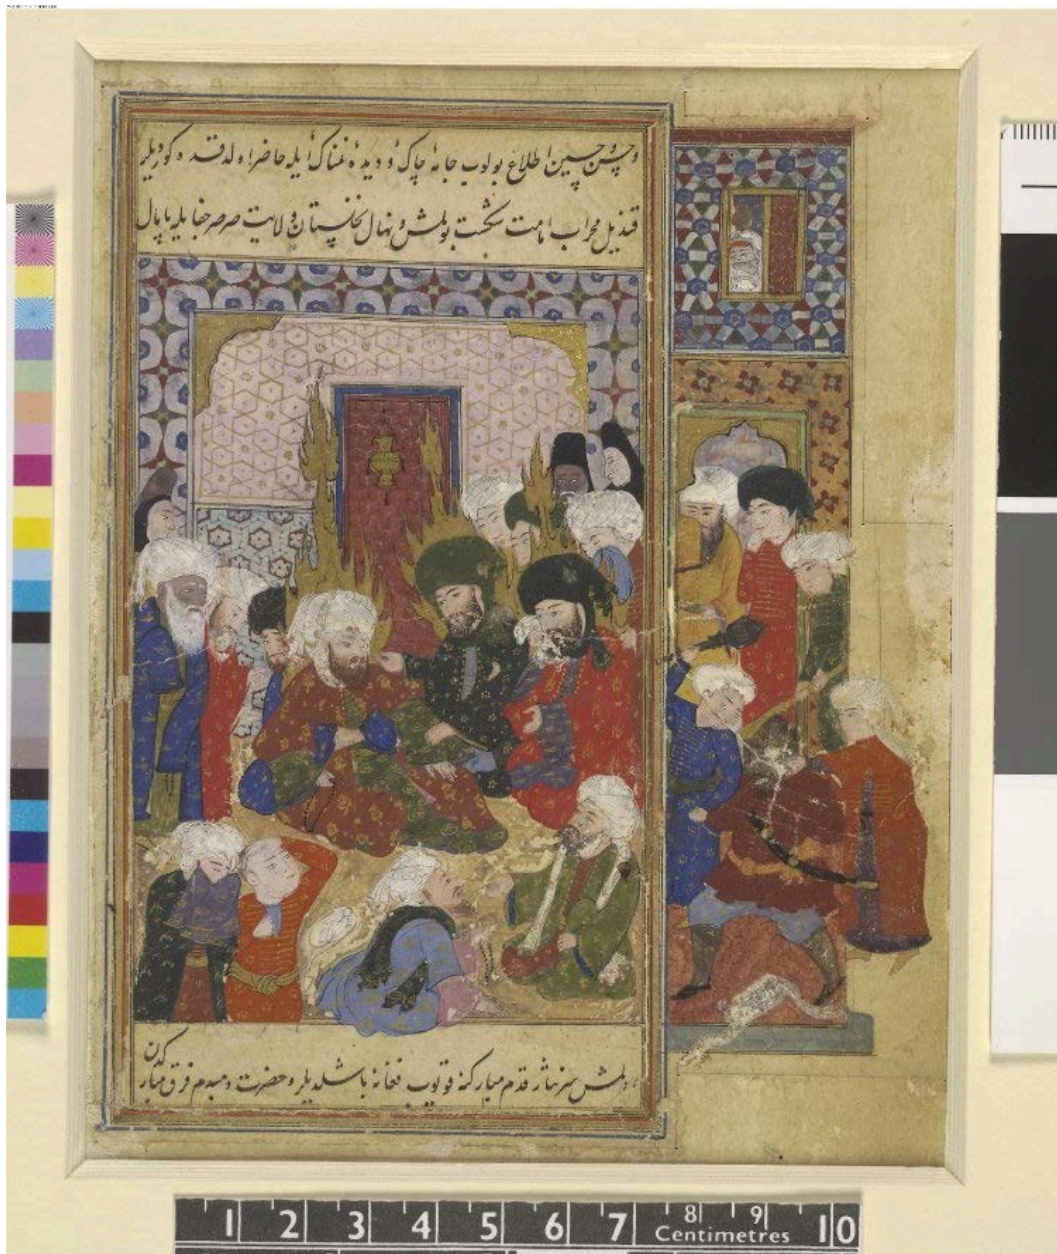 وحسن و حسین اطلاع بولوب جامهٔ چاک و دیدهٔ نمناک ایله حاضر اولدقده کوردیلر
قندیل محراب امامت شکست بولمش و نهال نخلستان ولایت صرصر جفا ایله پایمال
اولمش سر نیاز قدم مبارکنه قویوب فغانه باشلدیلر و حضرت دمبدم فرق مبارکدن
1 2 3 4 5 6 7 8 9 10
Centimetres